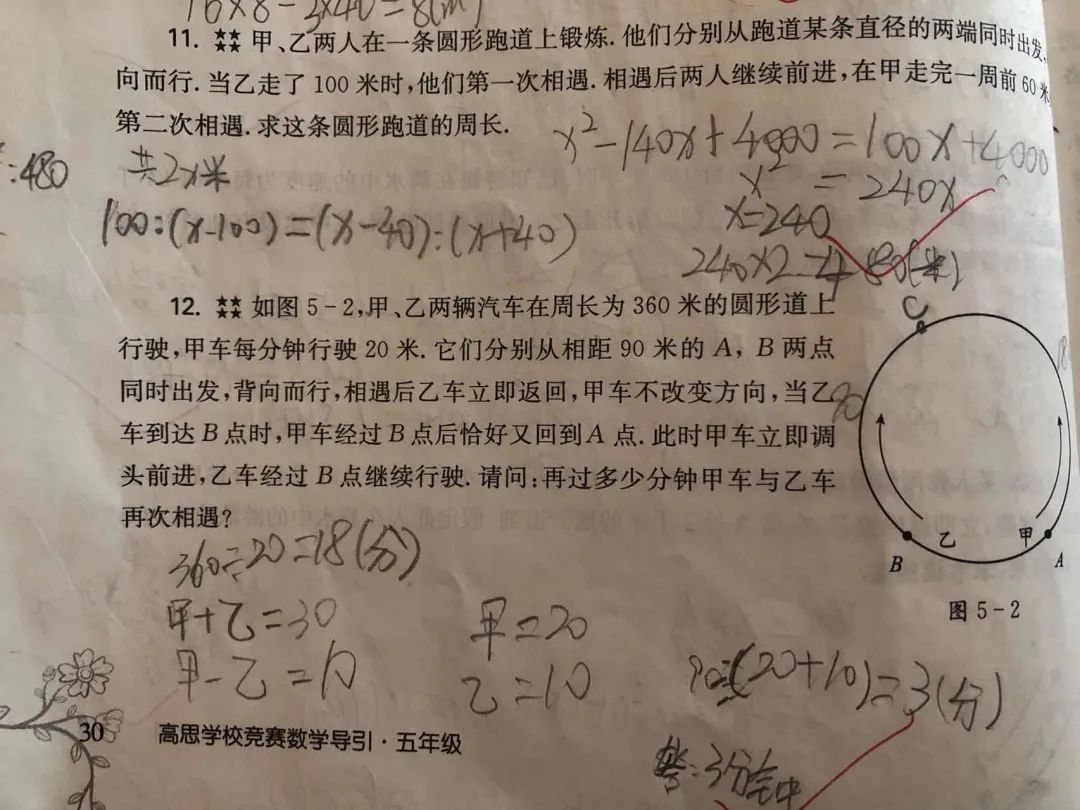 16×8-3×40=8(m)
11. ★★★★ 甲、乙两人在一条圆形跑道上锻炼.他们分别从跑道某条直径的两端同时出发,
向而行.当乙走了100米时,他们第一次相遇.相遇后两人继续前进,在甲走完一周前60米
第二次相遇.求这条圆形跑道的周长.
x²-140x+4000=100x+4000
:480
共2x米
x²=240x
100:(x-100)=(x-40):(x+40)
x=240
240×2=480(米)
12. ★★★★ 如图5-2,甲、乙两辆汽车在周长为360米的圆形道上
行驶,甲车每分钟行驶20米.它们分别从相距90米的A,B两点
同时出发,背向而行,相遇后乙车立即返回,甲车不改变方向,当乙
车到达B点时,甲车经过B点后恰好又回到A点.此时甲车立即调
头前进,乙车经过B点继续行驶.请问:再过多少分钟甲车与乙车
再次相遇?
C
90
18
乙
甲
B
A
图5-2
360÷20=18(分)
甲+乙=30
甲=20
甲-乙=10
乙=10
90÷(20+10)=3(分)
答:3分钟
30
高思学校竞赛数学导引·五年级